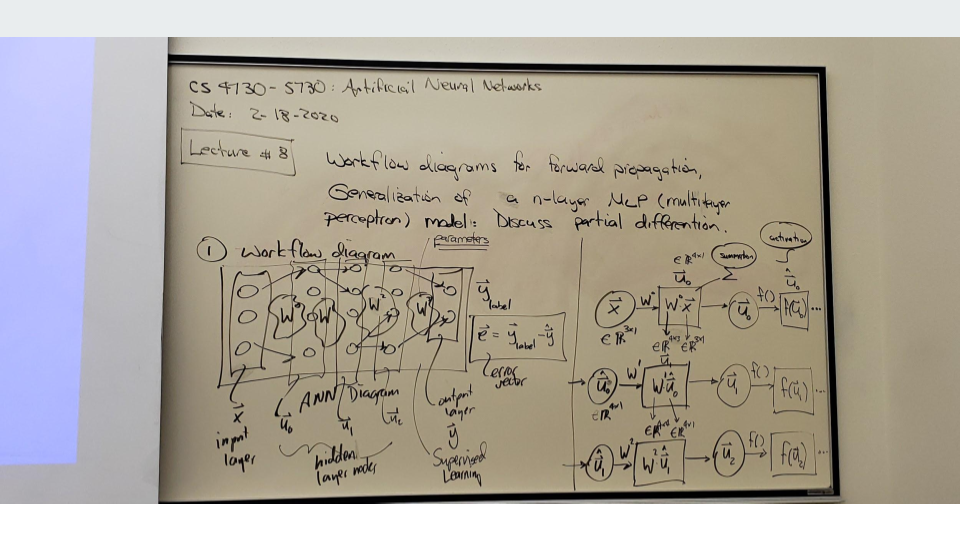 CS 4730 - 5730 : Artificial Neural Networks
Date: 2-18-2020
Lecture # 8
Workflow diagrams for forward propagation,
Generalization of a n-layer MLP (multilayer
perceptron) model: Discuss partial differention.
① Workflow diagram
parameters
W⁰ W¹ W² W³
y⃗ label
e⃗ = y⃗ label - ŷ
error
vector
ANN Diagram
x⃗
input
layer
u⃗₀
u⃗₁
u⃗₂
hidden
layer nodes
output
layer
y⃗
Supervised
Learning
activation
summation
∈ℝ⁴ˣ¹
u⃗₀
Σ
x⃗ W⁰ W⁰x⃗ u⃗₀ f() f(u⃗₀) ...
∈ℝ³ˣ¹
∈ℝ⁴ˣ³ ∈ℝ³ˣ¹
u⃗₁
û₀ W¹ W¹û₀ u⃗₁ f() f(u⃗₁) ...
∈ℝ⁴ˣ¹
∈ℝ⁴ˣ⁴ ∈ℝ⁴ˣ¹
û₁ W² W²û₁ u⃗₂ f() f(u⃗₂) ...